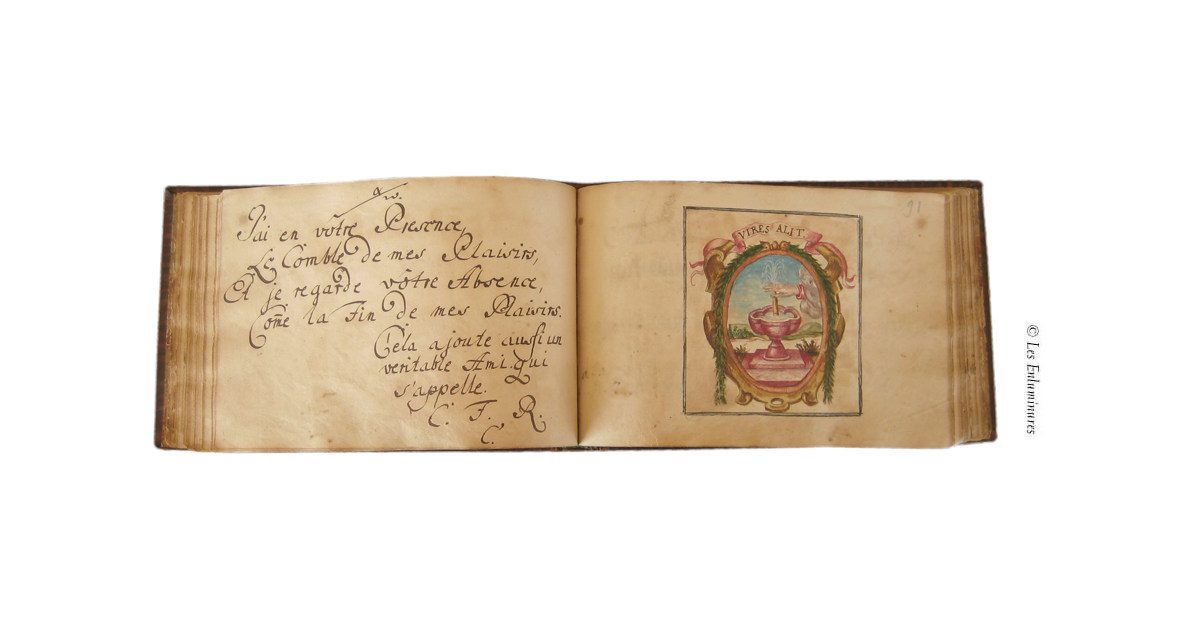 J'ai en vôtre Presence,
Le Comble de mes Plaisirs,
Et je regarde vôtre Absence,
Come la Fin de mes Plaisirs.
Cela ajoute aussi un
veritable Ami. qui
s'appelle.
C. F. R.
C.
91
VIRES ALIT.
© Les Enluminures